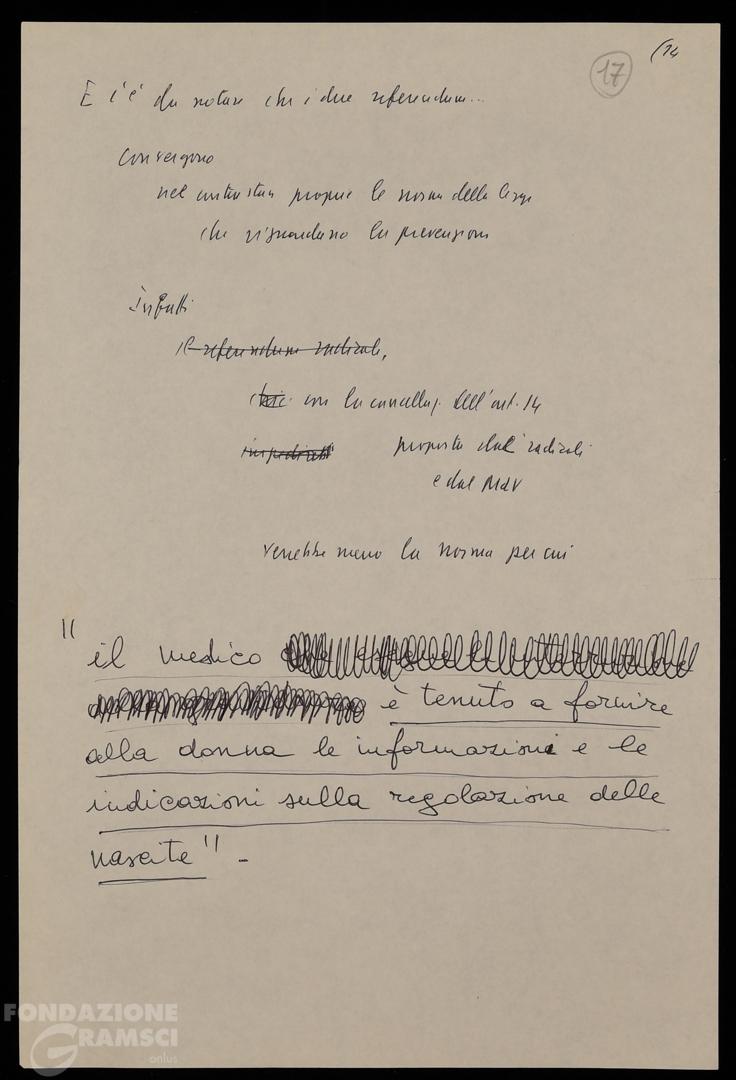 (14
17
E c'è da notare che i due referendum...
Convergono
nel contrastare proprio le norme della legge
che riguardano la prevenzione
Infatti
il referendum radicale,
con la cancellaz. dell'art. 14
proposta dai radicali
e dal MdV
verrebbe meno la norma per cui
"il medico
è tenuto a fornire
alla donna le informazioni e le
indicazioni sulla regolazione delle
nascite" -
FONDAZIONE
GRAMSCI
onlus